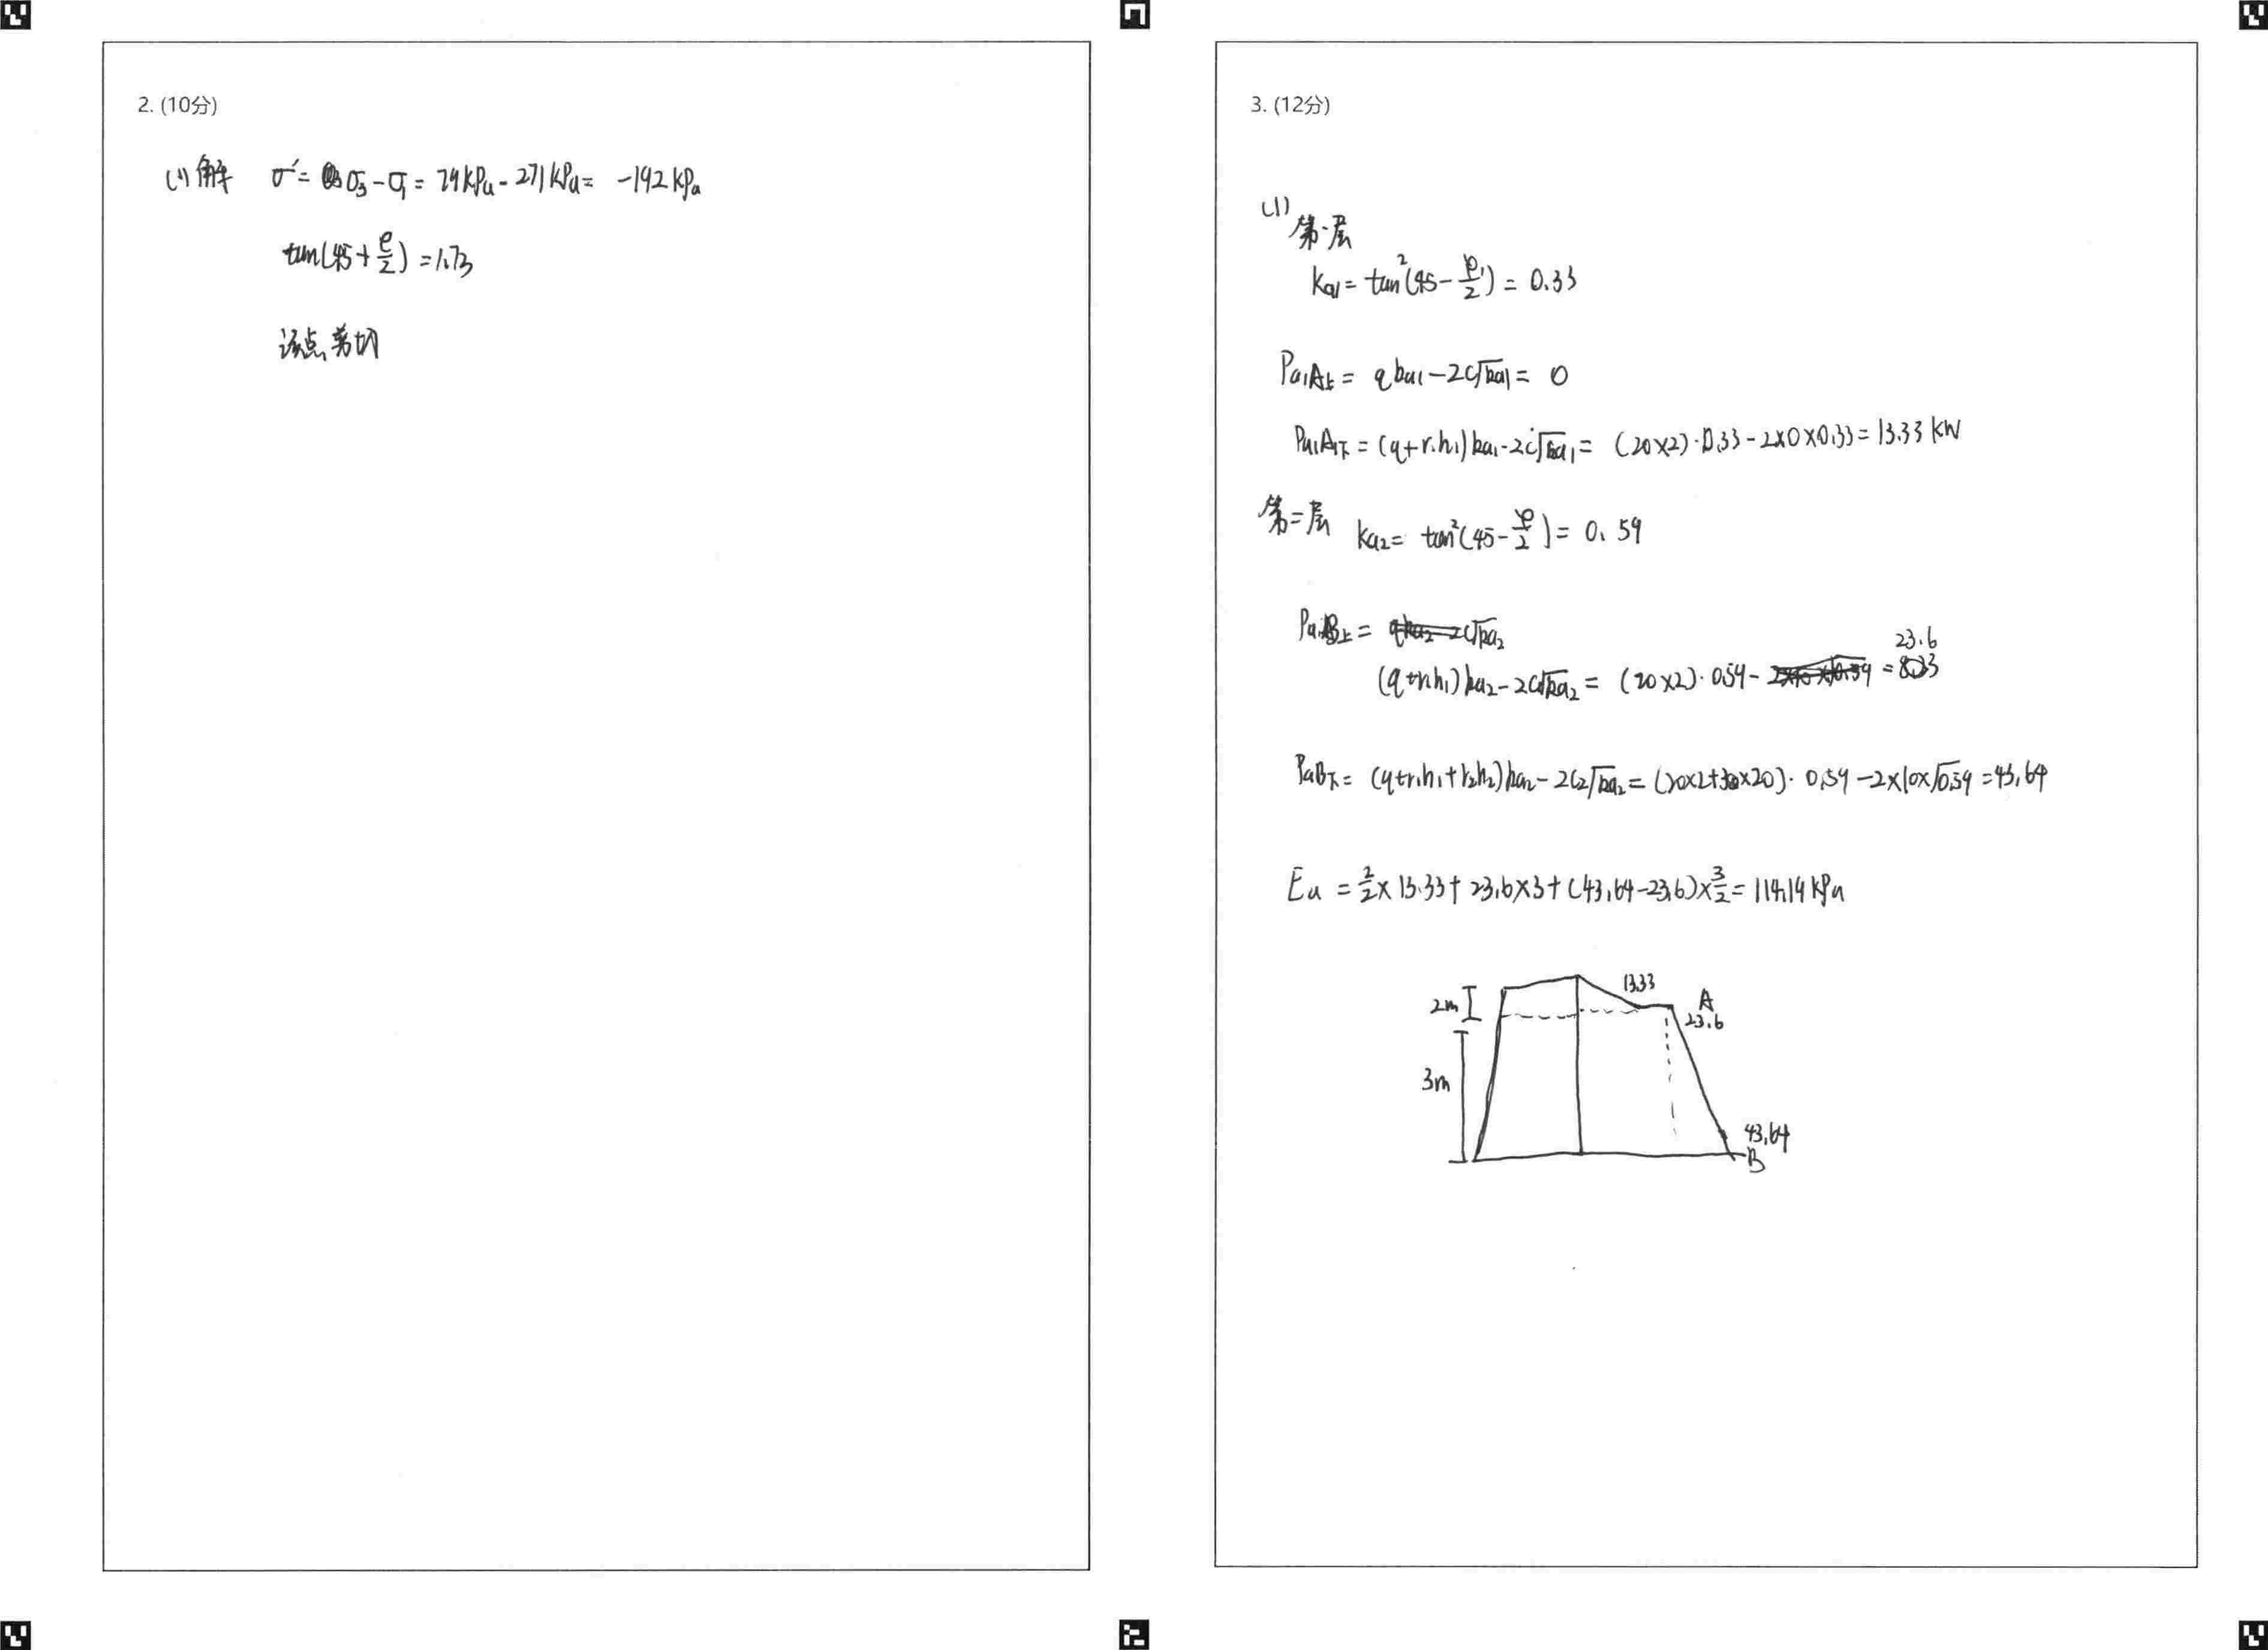 2. (10分)
(1) 解 σ′= σ₃-σ₁ = 79kPa - 271kPa = -192kPa
tan(45+φ/2) = 1.73
该点剪切
3. (12分)
(1)
第一层
Ka1 = tan²(45-φ₁/2) = 0.33
Pa1A上 = qka1-2c√ka1 = 0
Pa1A下 = (q+r₁h₁)ka1-2c√ka1 = (20×2)·0.33-2×0×0.33 = 13.33 kW
第二层 Ka2 = tan²(45-φ/2) = 0.59
PaB上 = c√ka2
(q+r₁h₁)ka2-2c√ka2 = (20×2)·0.59- = 23.6
PaB下 = (q+r₁h₁+r₂h₂)ka2-2c₂√ka2 = (20×2+3×20)·0.59-2×10×√0.59 = 43.64
Ea = 2/2×13.33+23.6×3+(43.64-23.6)×3/2 = 114.19kPa
13.33
2m
A
23.6
3m
43.64
B